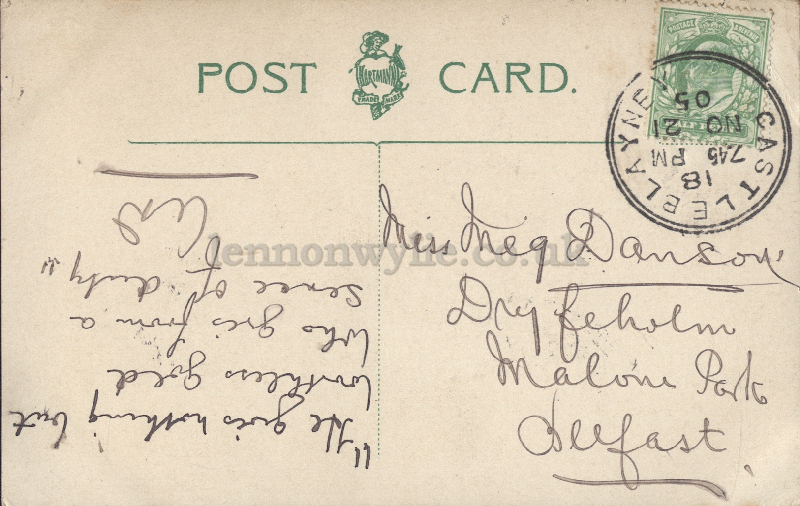 POST CARD.
HARTMANN
TRADE MARK
POSTAGE & REVENUE
CASTLEBLAYNEY
18
7.45 PM
NO 21
05
lennonwylie.co.uk
Miss Meg Danson
Dryfeholm
Malone Park
Belfast
"He gives nothing but
worthless gold
Who gives from a
sence of duty"